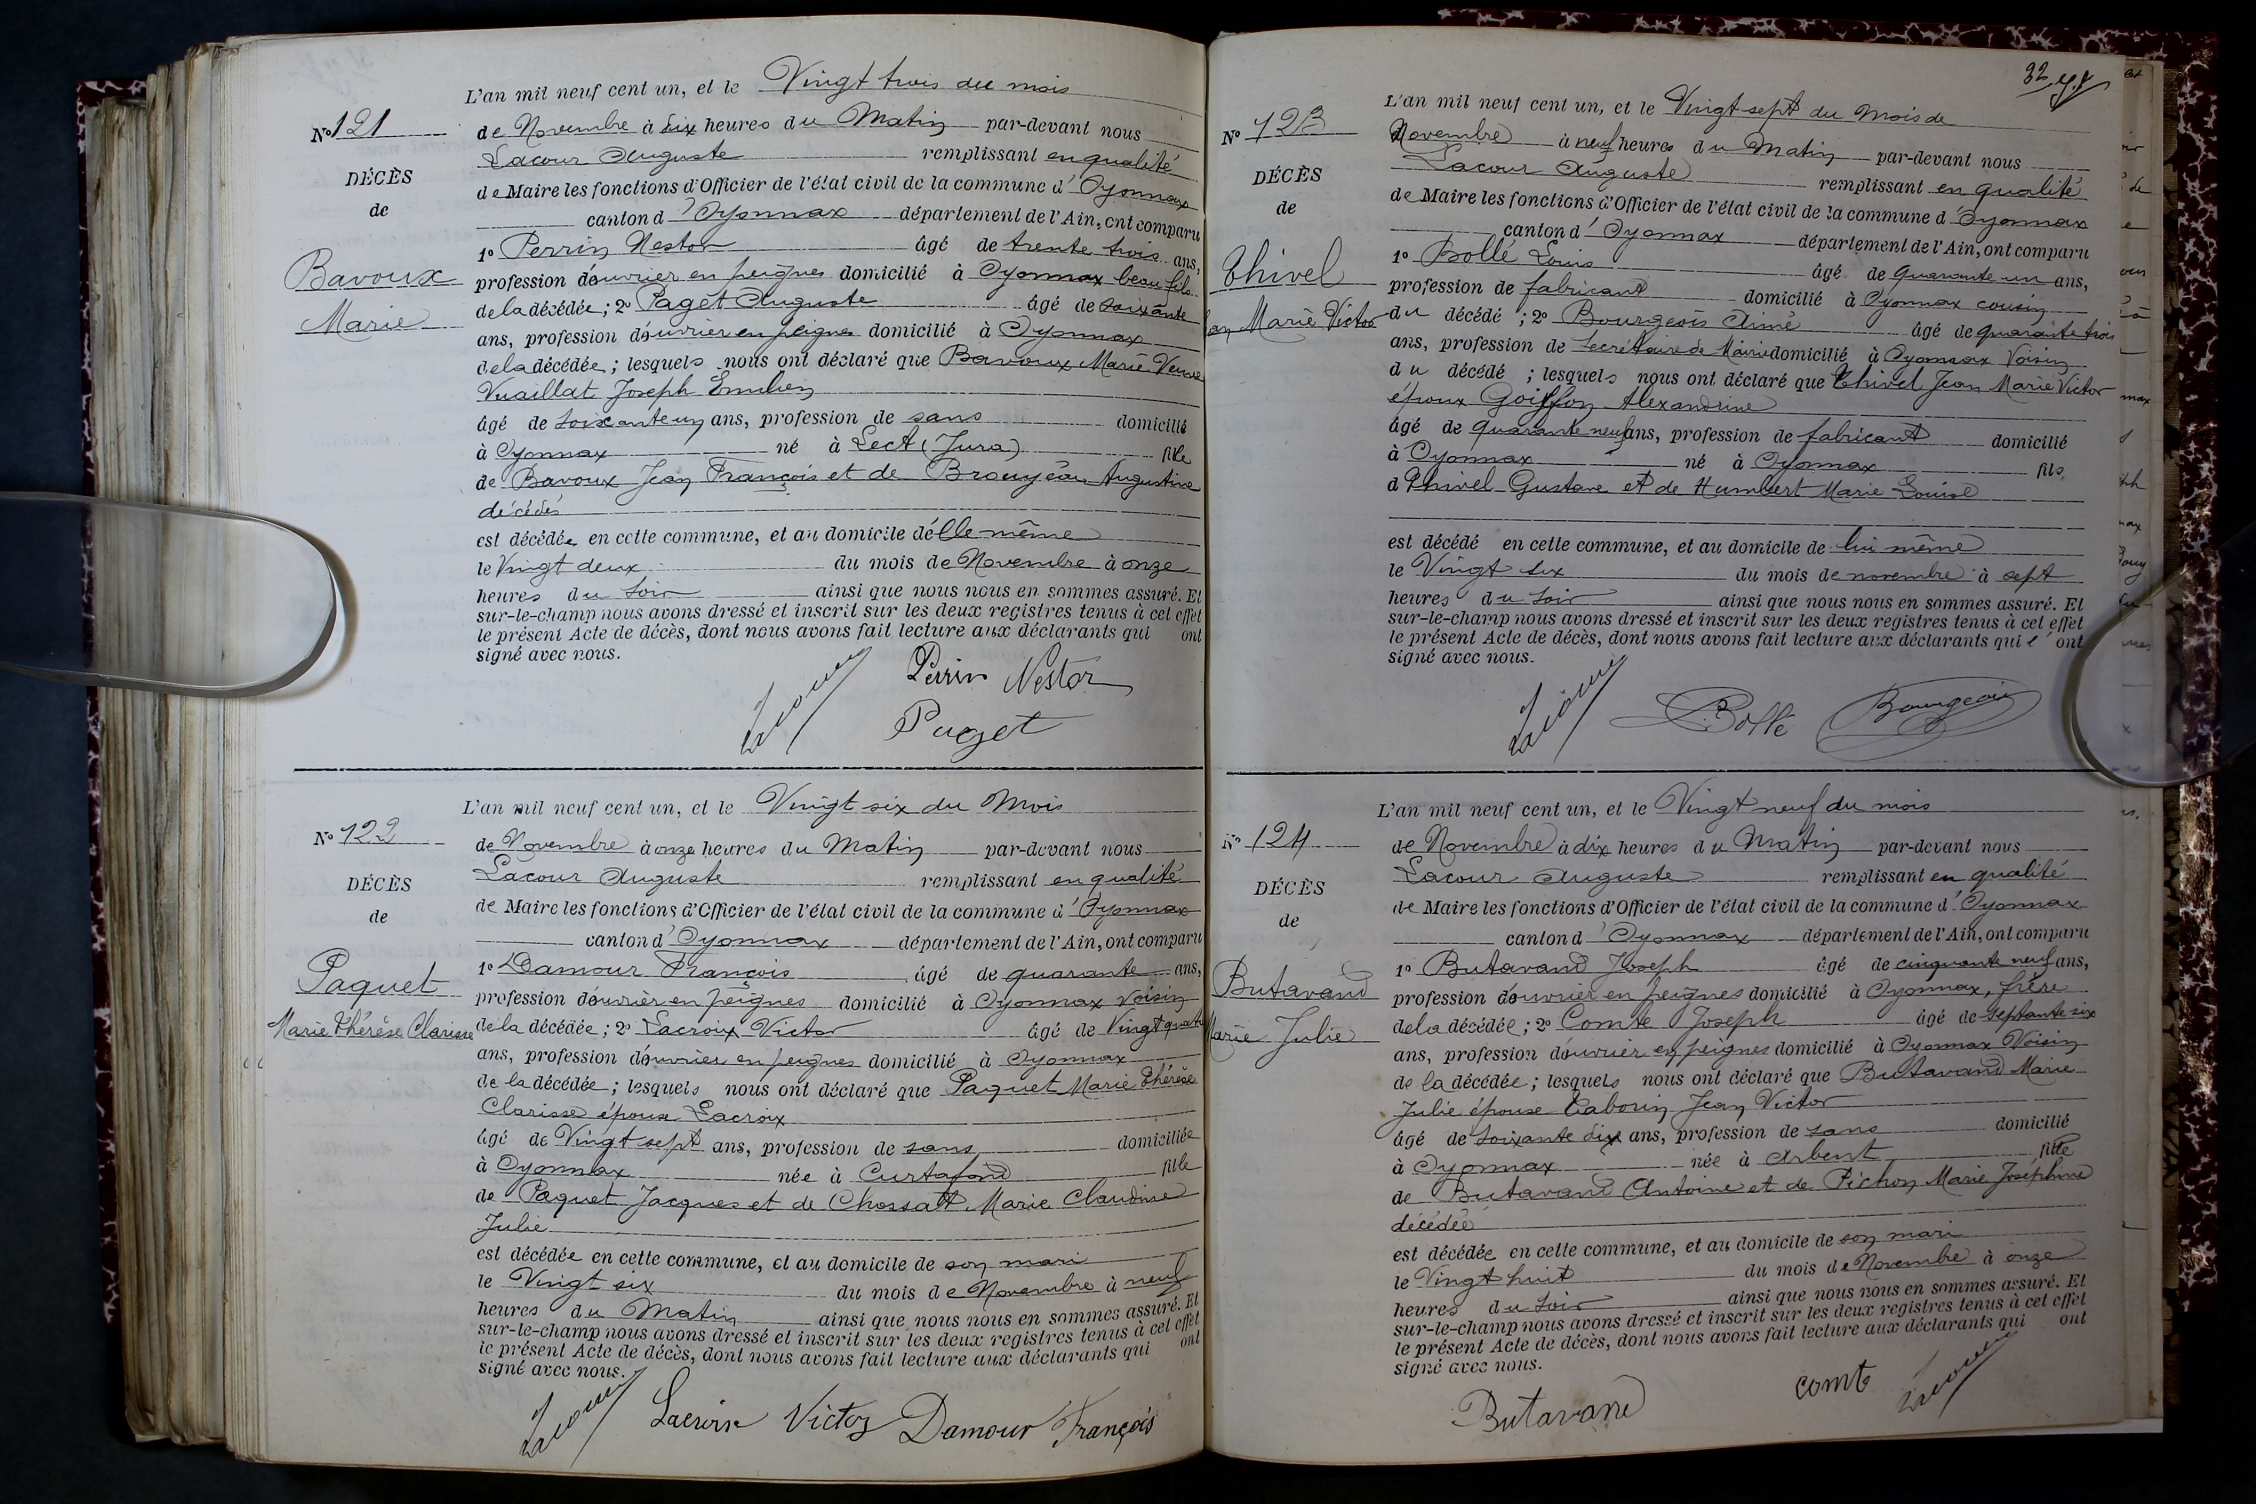 L'an mil neuf cent un, et le Vingt trois du mois
No 121
de Novembre à dix heures du Matin par-devant nous
Lacour Auguste remplissant en qualité
DÉCÈS
de Maire les fonctions d'Officier de l'état civil de la commune d'Oyonnax
de
canton d'Oyonnax département de l'Ain, ont comparu
1o Perrin Nestor âgé de trente trois ans,
Bavoux
profession d'ouvrier en peignes domicilié à Oyonnax beau fils
Marie
de la décédée; 2o Paget Auguste âgé de soixante
ans, profession d'ouvrier en peignes domicilié à Oyonnax
de la décédée; lesquels nous ont déclaré que Bavoux Marie Veuve
Vuaillat Joseph Emilien
âgé de soixante un ans, profession de sans domicilié
à Oyonnax né à Lect (Jura) fille
de Bavoux Jean François et de Augustine
décédés
est décédée en cette commune, et au domicile d'elle même
le Vingt deux du mois de Novembre à onze
heures du soir ainsi que nous nous en sommes assuré. Et
sur-le-champ nous avons dressé et inscrit sur les deux registres tenus à cet effet
le présent Acte de décès, dont nous avons fait lecture aux déclarants qui ont
signé avec nous.
Lacour Perrin Nestor
Paget
L'an mil neuf cent un, et le Vingt six du Mois
No 122
de Novembre à onze heures du Matin par-devant nous
Lacour Auguste remplissant en qualité
DÉCÈS
de Maire les fonctions d'Officier de l'état civil de la commune d'Oyonnax
de
canton d'Oyonnax département de l'Ain, ont comparu
1o Damour François âgé de quarante ans,
Paquet
profession d'ouvrier en peignes domicilié à Oyonnax voisin
Marie Thérèse Clarisse
de la décédée; 2o Lacroix Victor âgé de Vingt quatre
ans, profession d'ouvrier en peignes domicilié à Oyonnax
de la décédée; lesquels nous ont déclaré que Paquet Marie Thérèse
Clarisse épouse Lacroix
âgé de Vingt sept ans, profession de sans domiciliée
à Oyonnax née à Curtafond fille
de Paquet Jacques et de Chossatt Marie Claudine
Julie
est décédée en cette commune, et au domicile de son mari
le Vingt six du mois de Novembre à neuf
heures du Matin ainsi que nous nous en sommes assuré. Et
sur-le-champ nous avons dressé et inscrit sur les deux registres tenus à cet effet
le présent Acte de décès, dont nous avons fait lecture aux déclarants qui ont
signé avec nous.
Lacour Lacroix Victor Damour François
32
L'an mil neuf cent un, et le Vingt sept du Mois de
No 123
Novembre à neuf heures du Matin par-devant nous
Lacour Auguste remplissant en qualité
DÉCÈS
de Maire les fonctions d'Officier de l'état civil de la commune d'Oyonnax
de
canton d'Oyonnax département de l'Ain, ont comparu
1o Bollé Louis âgé de quarante un ans,
Thivel
profession de fabricant domicilié à Oyonnax cousin
Marie Victor
du décédé; 2o Bourgeois Aimé âgé de quarante trois
ans, profession de Secrétaire de Mairie domicilié à Oyonnax Voisin
du décédé; lesquels nous ont déclaré que Thivel Jean Marie Victor
époux Goiffon Alexandrine
âgé de quarante neuf ans, profession de fabricant domicilié
à Oyonnax né à Oyonnax fils
d Thivel Gustave et de Humbert Marie Louise
est décédé en cette commune, et au domicile de lui même
le Vingt six du mois de novembre à sept
heures du soir ainsi que nous nous en sommes assuré. Et
sur-le-champ nous avons dressé et inscrit sur les deux registres tenus à cet effet
le présent Acte de décès, dont nous avons fait lecture aux déclarants qui l'ont
signé avec nous.
Lacour Bollé Bourgeois
L'an mil neuf cent un, et le Vingt neuf du mois
No 124
de Novembre à dix heures du Matin par-devant nous
Lacour Auguste remplissant en qualité
DÉCÈS
de Maire les fonctions d'Officier de l'état civil de la commune d'Oyonnax
de
canton d'Oyonnax département de l'Ain, ont comparu
1o Butavand Joseph âgé de cinquante neuf ans,
Butavand
profession d'ouvrier en peignes domicilié à Oyonnax, frère
Marie Julie
de la décédée; 2o Comte Joseph âgé de septante six
ans, profession d'ouvrier en peignes domicilié à Oyonnax Voisin
de la décédée; lesquels nous ont déclaré que Butavand Marie
Julie épouse Tabourin Jean Victor
âgé de soixante dix ans, profession de sans domicilié
à Oyonnax née à Arbent fille
de Butavand Antoine et de Pichon Marie Joséphine
décédée
est décédée en cette commune, et au domicile de son mari
le Vingt huit du mois de Novembre à onze
heures du soir ainsi que nous nous en sommes assuré. Et
sur-le-champ nous avons dressé et inscrit sur les deux registres tenus à cet effet
le présent Acte de décès, dont nous avons fait lecture aux déclarants qui ont
signé avec nous.
Butavand Comte Lacour